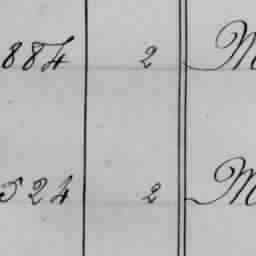 884 2 M
524 2 M